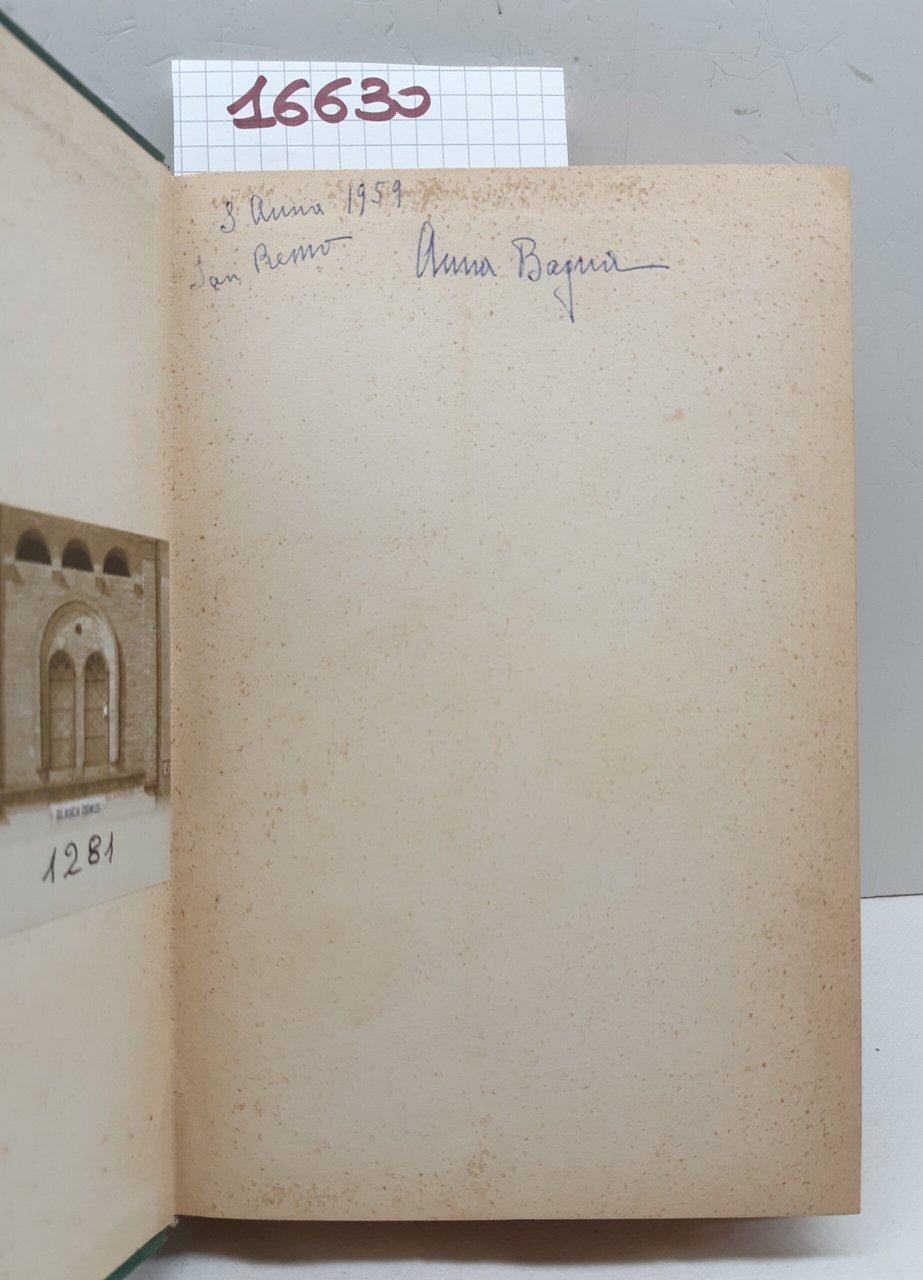 16630
S. Anna 1959
San Remo
Anna Bagna
GLAUCA DOMUS
1281